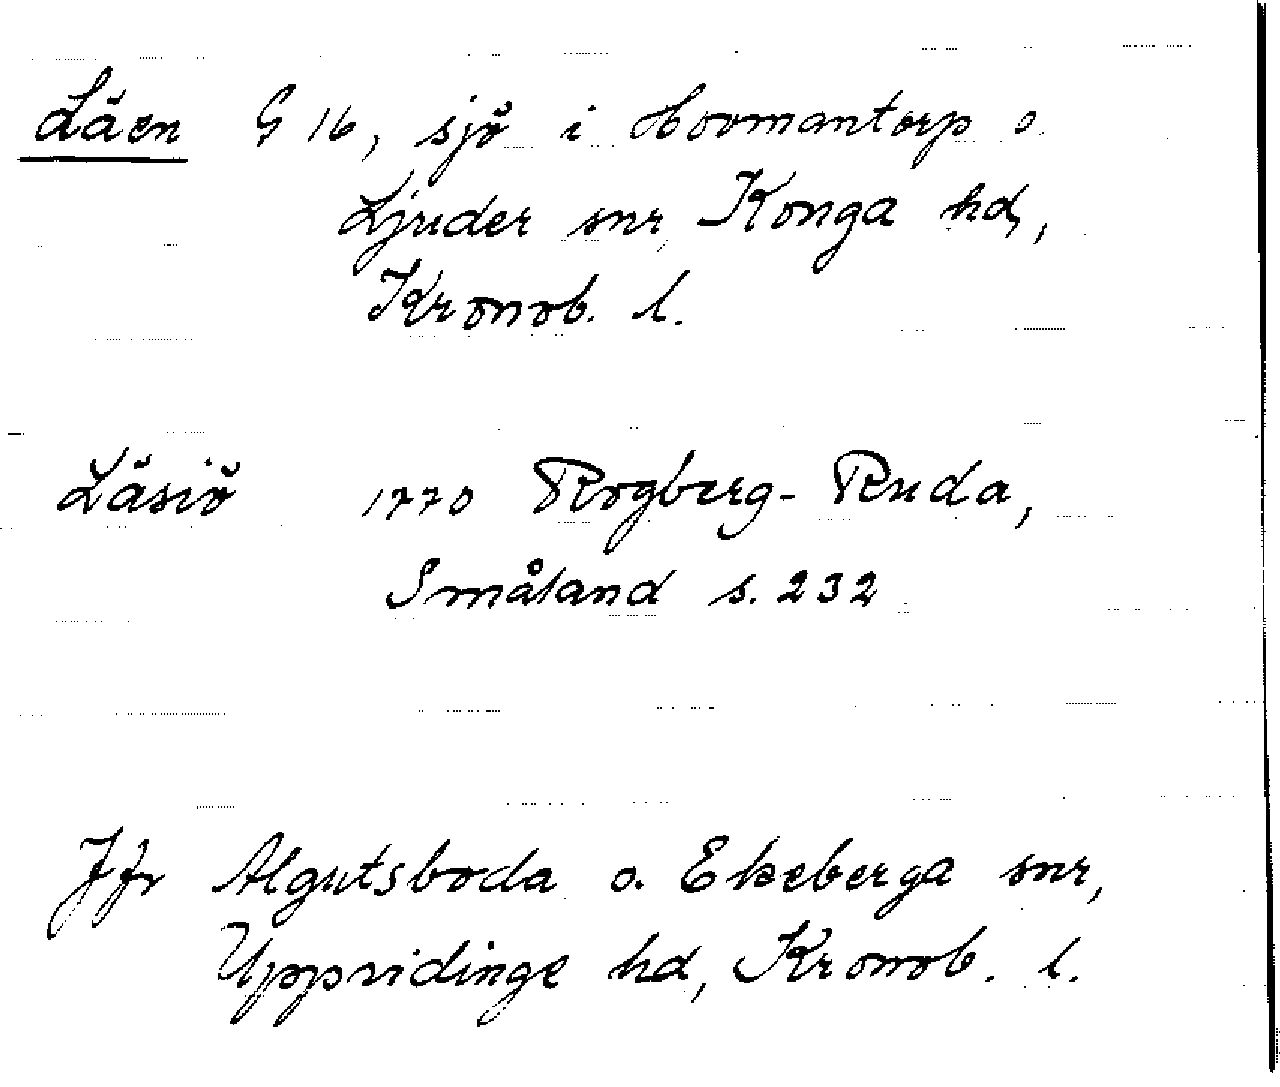 Läen G 16, sjö i Hovmantorp o.
Ljuder snr, Konga hd,
Kronob. l.
Läsiö 1770 Rogberg-Ruda,
Småland s. 232
Jfr Algutsboda o. Ekeberga snr,
Uppvidinge hd, Kronob. l.